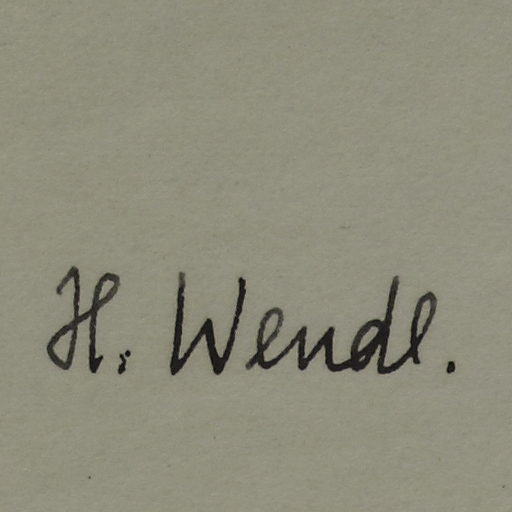 H. Wendl.